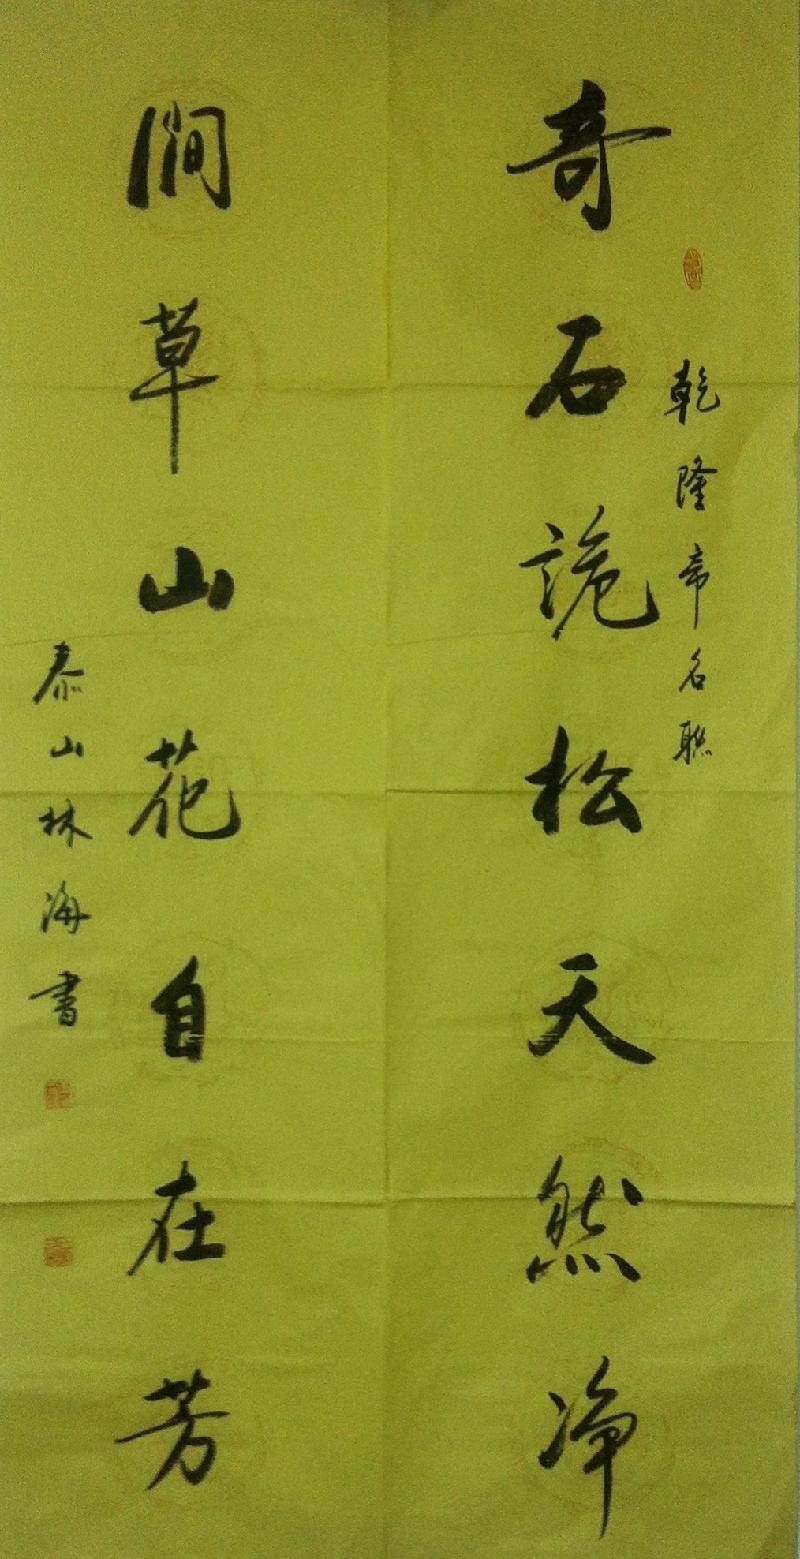 奇石詭松天然净
乾隆帝名聯
澗草山花自在芳
泰山林海書